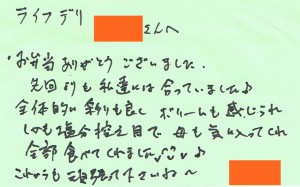 ライフデリ
さんへ
・お弁当ありがとうございました。
先回よりも私達には合っていました♪
全体的に彩りも良し ボリュームも感じられ
しかも塩分控え目で 母も気に入ってくれ
全部食べてくれました ♪
これからも頑張って下さいね〜